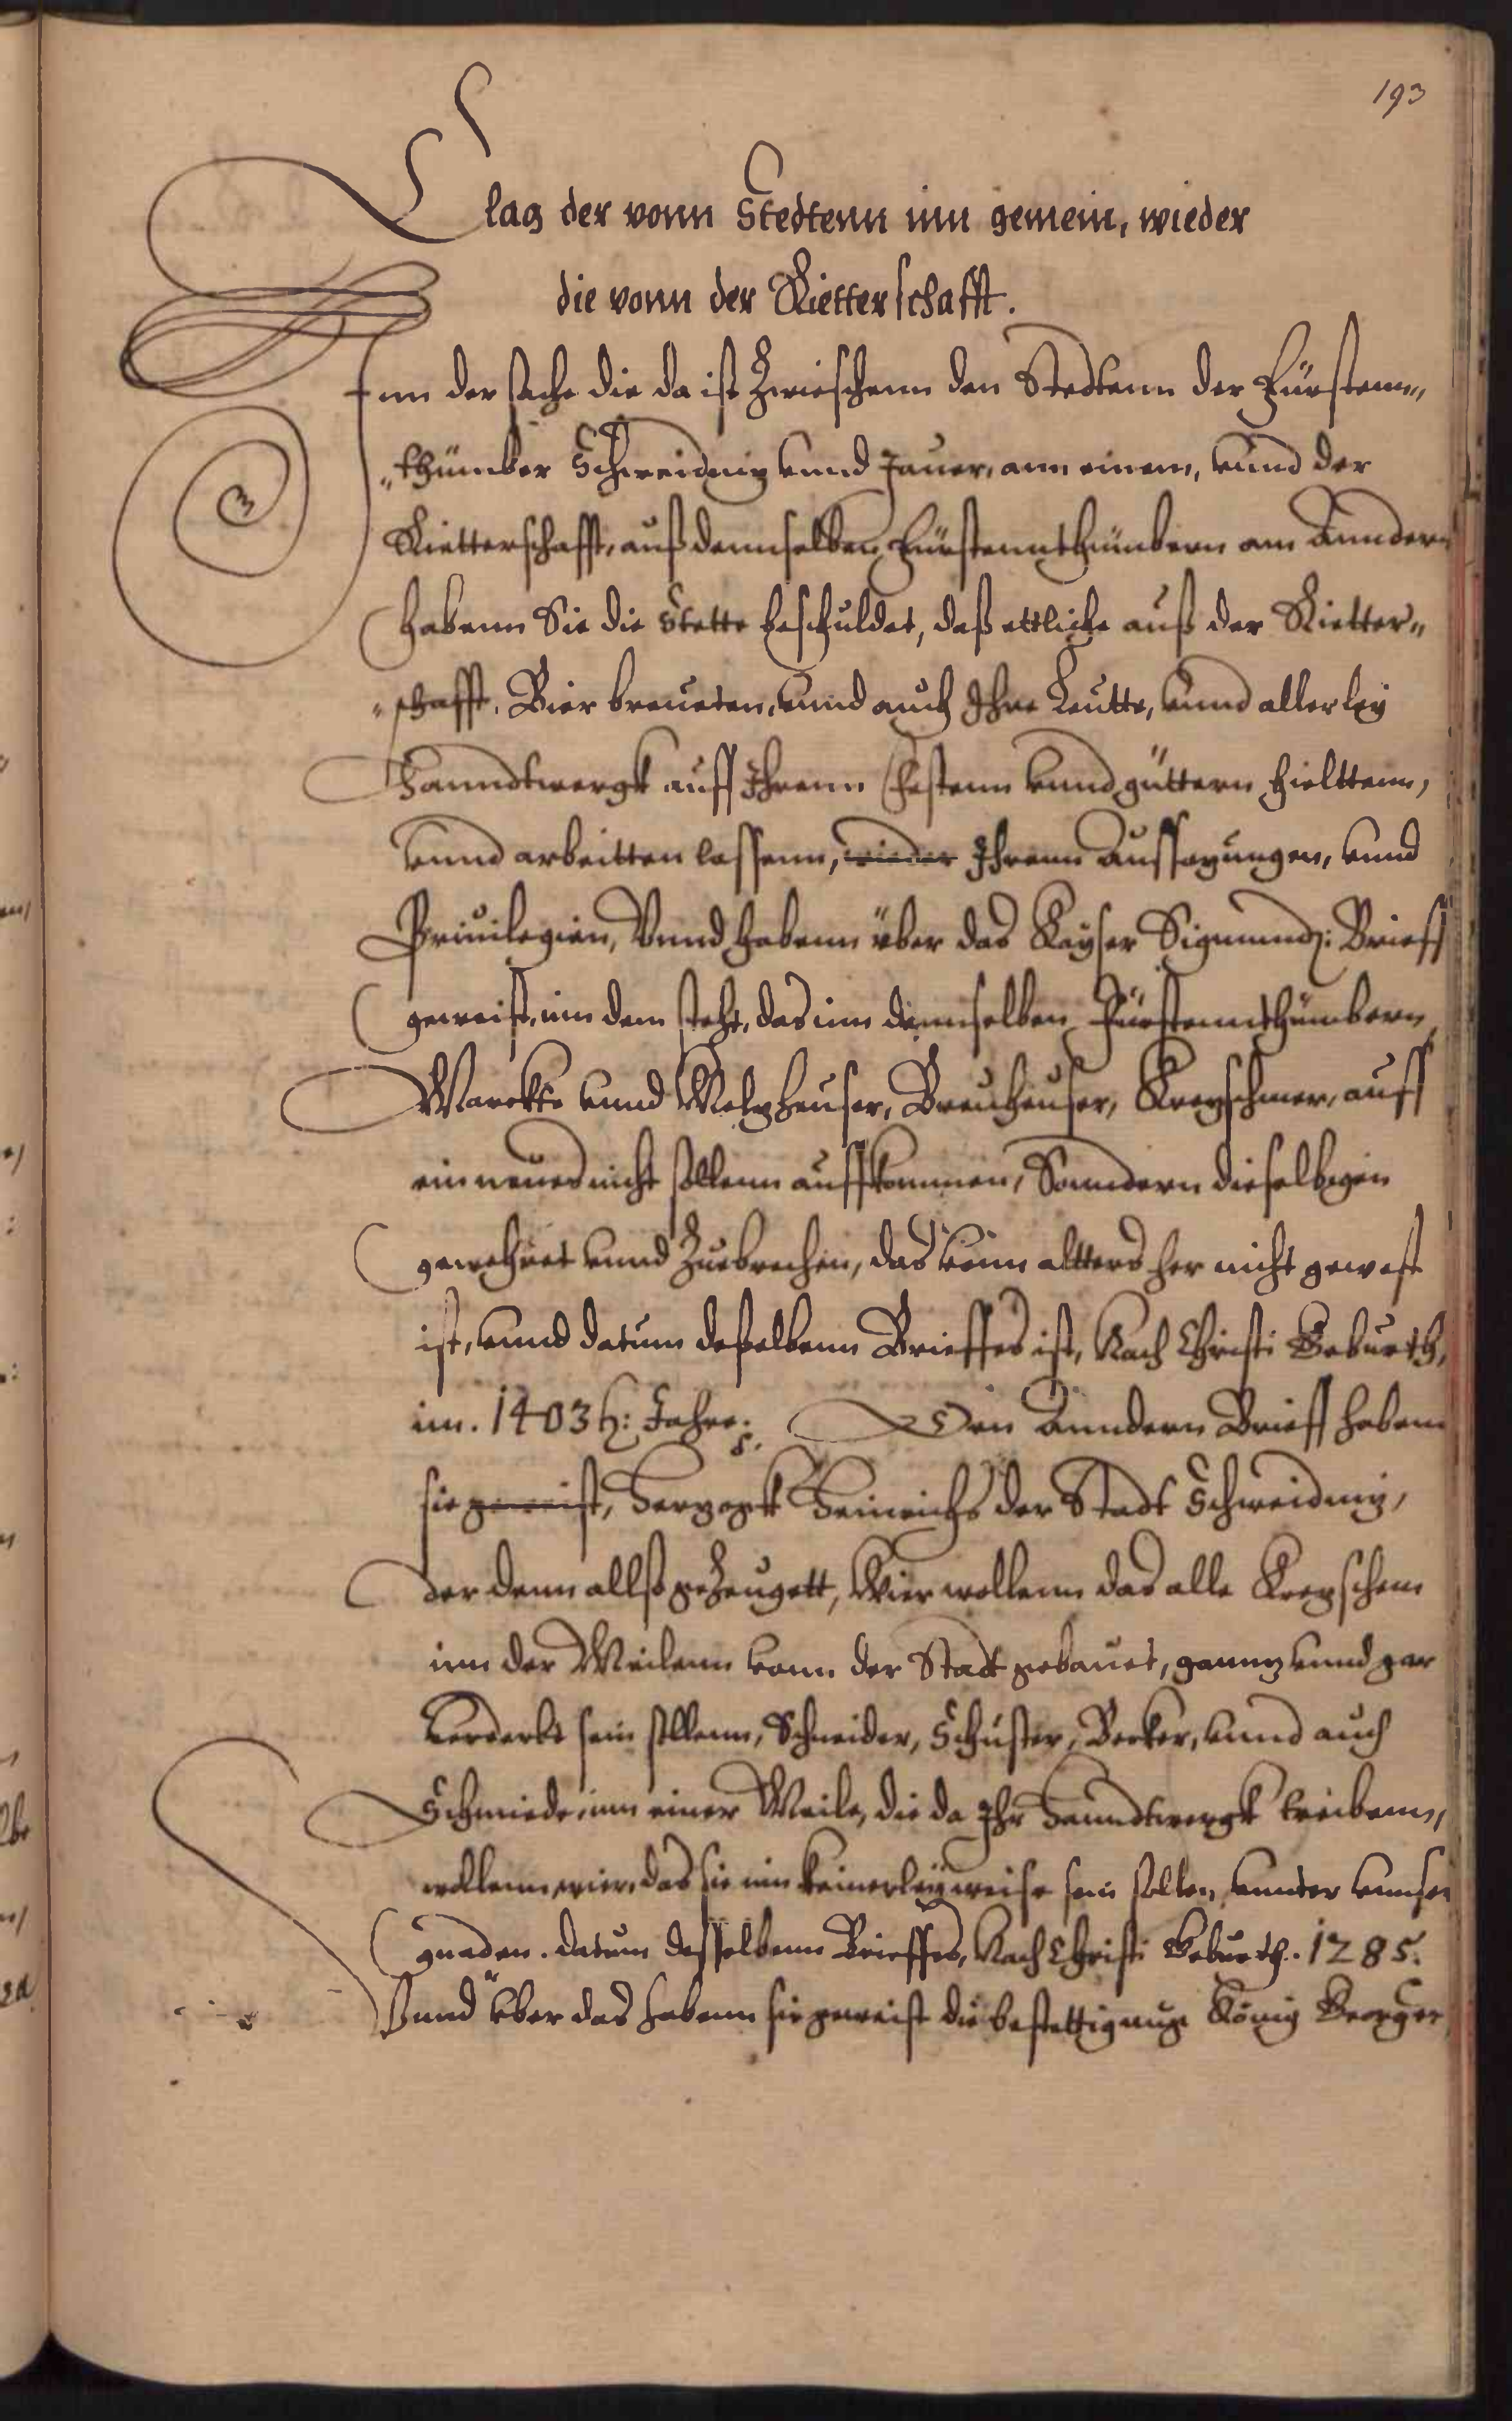 193
Clag der vonn Stedtenn inn gemein, wieder
die vonn der Rietterschafft.
Inn der sache die da ist Zwieschenn den Stedtenn der Fürstenn„
„thümber Schweidnitz unnd Jauer, ann einem, unnd der
Rietterschafft, auß dennselben Fürstennthümbern am Anndern
habenn Sie die Stette beschuldet, daß ettliche auß der Rietter„
„schafft, Bier breueten, unnd auch Ihre Leutte, unnd allerley
Hanndtwergk auff Ihrenn Chestenn unnd güttern hielttenn,
unnd arbeitten lassenn, wieder Ihrenn Aussatzungen, unnd
Priuilegien, Unnd habenn über das Kayser Sigmundi: Brieff
geweist, inn dem steht, das inn dennselben Fürstennthümbern
Marckte unnd Meltzheuser, Breuheuser, Kretzschmer, auff
ein neues nicht sollenn auffkommen, Sonndern dieselbigen
gewehret unnd Zuebrechen, das vonn altters her nicht gewest
ist, unnd datum deßelbenn Brieffes ist, Nach Christi Geburth,
im. 1403 h: Jahre. Den Anndern Brieff habenn
sie geweist, Hertzogk Heinrichs der Stadt Schweidnitz,
der denn allso geZeugett, Wier wollenn das alle Kretzschem
inn der Meilenn vonn der Stadt gebauet, ganntz unnd gar
Verderbt sein sollenn, Schneider, Schuster, Becker, unnd auch
Schmiede, inn einer Meile, die da Ihr Hanndtwergk treibenn,
wollenn wier, das sie inn keinerley weise sein sollen, unnter unnser
gnaden. datum desselbenn Brieffes, Nach Christi Geburth. 1285.
Unnd über das habenn sie geweist die bestettigung König Georgen